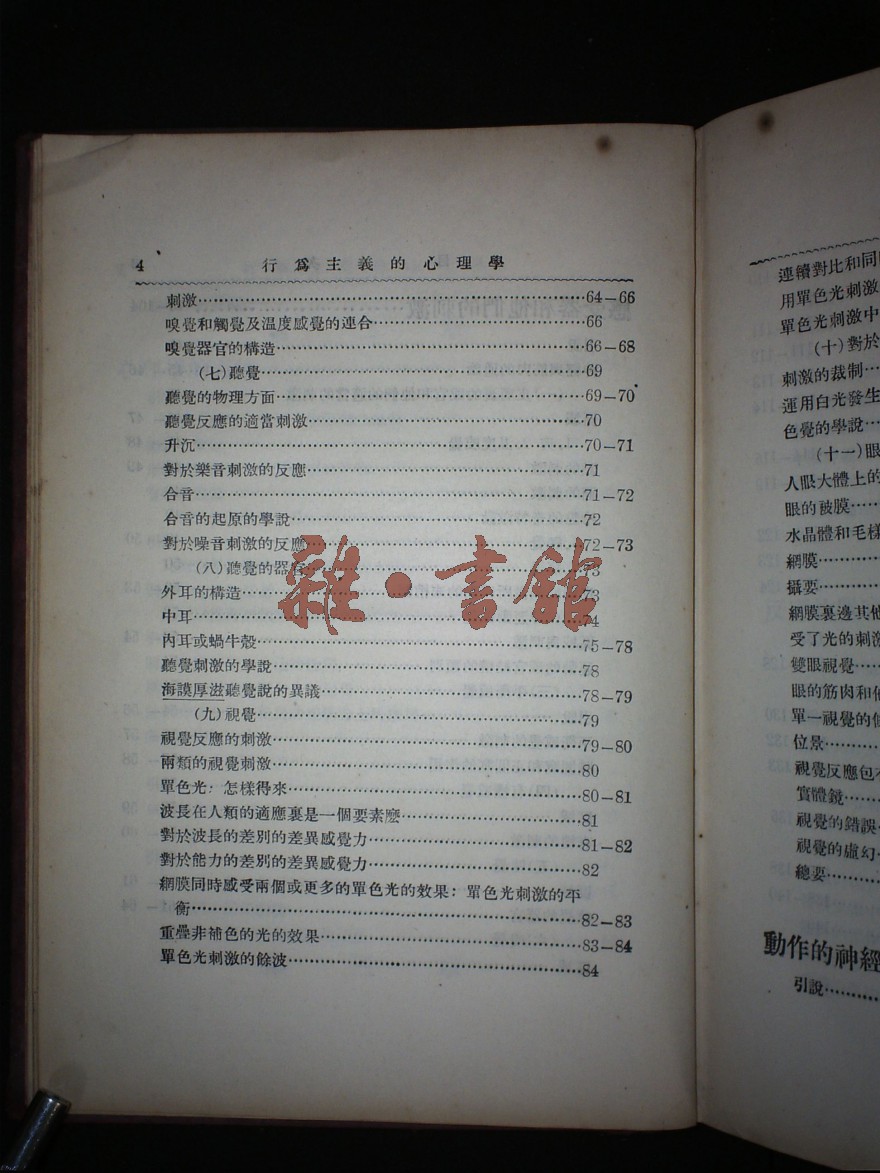 4 行爲主義的心理學
刺激……64—66
嗅覺和觸覺及温度感覺的連合……66
嗅覺器官的構造……66—68
(七)聽覺……69
聽覺的物理方面……69—70
聽覺反應的適當刺激……70
升沉……70—71
對於樂音刺激的反應……71
合音……71—72
合音的起原的學說……72
對於噪音刺激的反應……72—73
(八)聽覺的器官……73
外耳的構造……73
中耳……74
內耳或蝸牛殼……75—78
聽覺刺激的學說……78
海謨厚滋聽覺說的異議……78—79
(九)視覺……79
視覺反應的刺激……79—80
兩類的視覺刺激……80
單色光:怎樣得來……80—81
波長在人類的適應裏是一個要素麽……81
對於波長的差別的差異感覺力……81—82
對於能力的差別的差異感覺力……82
網膜同時感受兩個或更多的單色光的效果:單色光刺激的平
衡……82—83
重疊非補色的光的效果……83—84
單色光刺激的餘波……84
雜·書館
連續對比和同
用單色光刺激
單色光刺激中
(十)對於
刺激的裁制…
運用白光發生
色覺的學說…
(十一)眼
人眼大體上的
眼的被膜…
水晶體和毛樣
網膜……
攝要……
網膜裏邊其他
受了光的刺激
雙眼視覺…
眼的筋肉和他
單一視覺的
位景……
視覺反應包
實體鏡…
視覺的錯誤…
視覺的虛幻
總要……
動作的神經
引說……